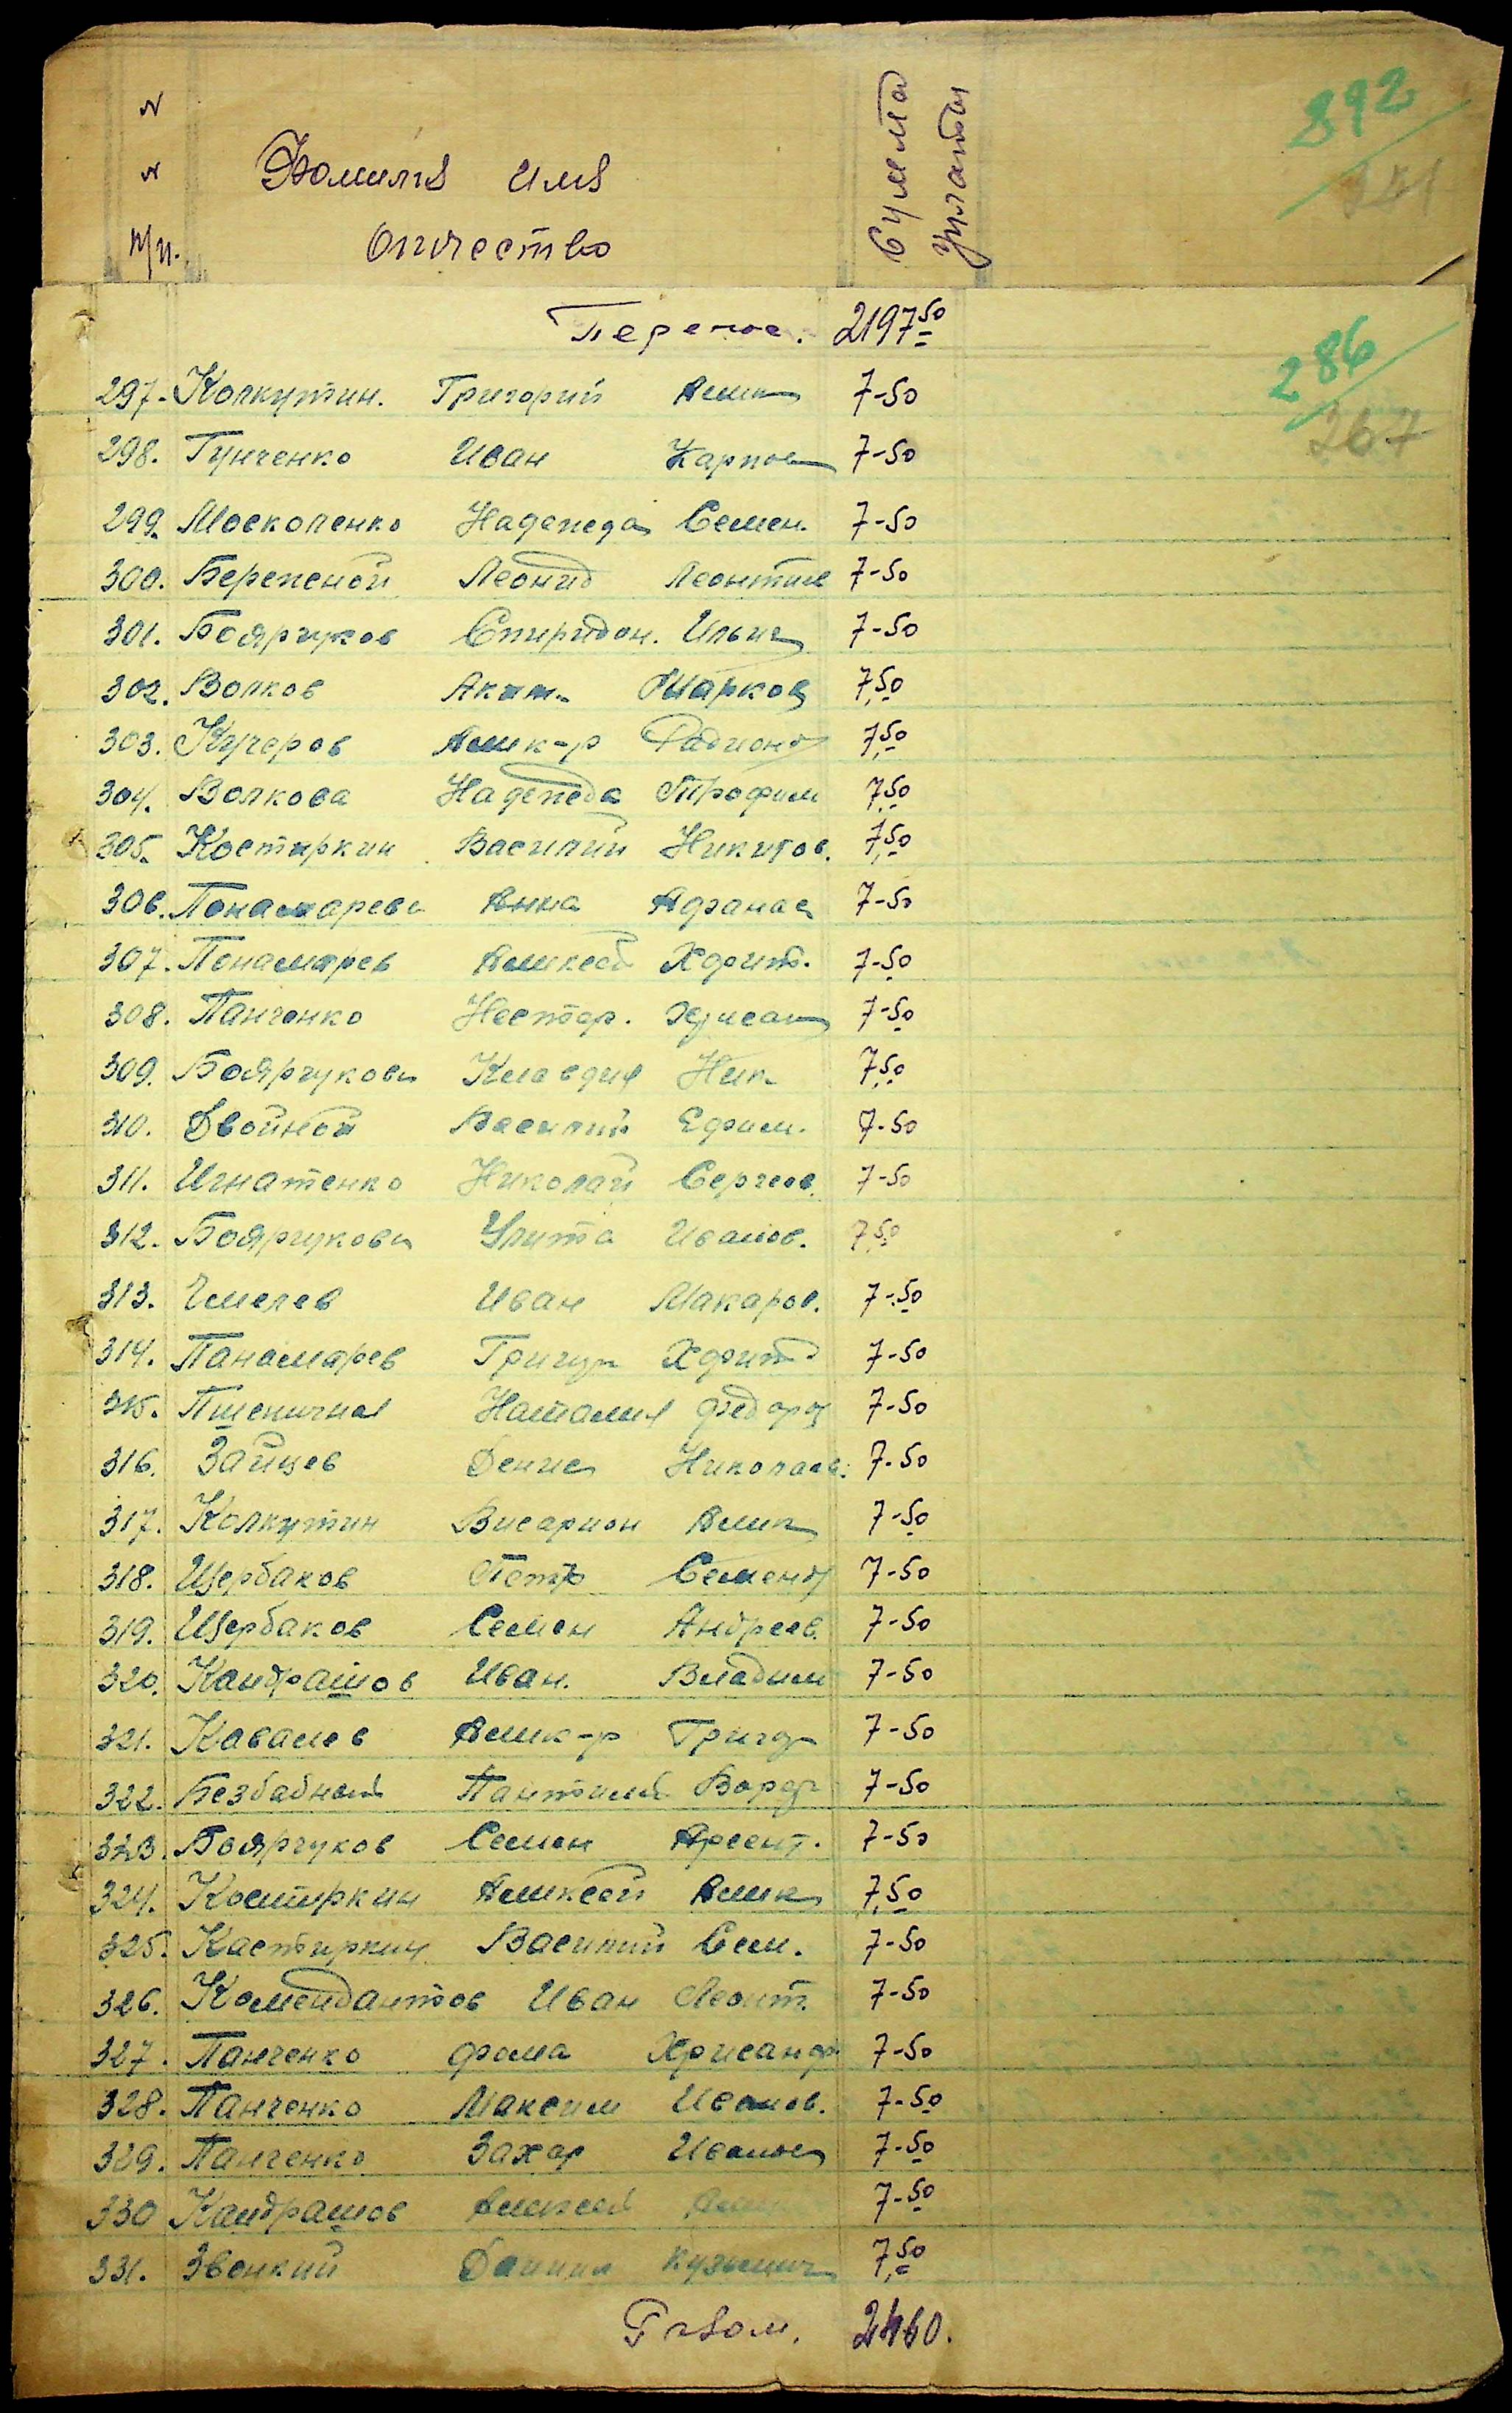 N
N
п/п.
Фомилия имя
отчество
Сумма
уплаты
892
Перенос. 2197 50
286
267
297. Колкутин. Григорий Алек 7-50
298. Гунченко Иван Карпов 7-50
299. Москоленко Надежда Семен. 7-50
300. Бережной Леонид Леонтие 7-50
301. Боярчуков Спиридон. Ильич 7-50
302. Волков Аким. Марков 7,50
303. Кучеров Алек-р Радионов 7,50
304. Волкова Надежда Трофим 7,50
305. Костыркин Василий Никитов. 7,50
306. Понамарева Анна Афанас 7-50
307. Понамарев Алексей Харит. 7-50
308. Панченко Нестор. Хрисан 7-50
309. Боярчукова Клавдия Ник. 7,50
310. Двойной Василий Ефим. 7-50
311. Игнатенко Николай Сергеев. 7-50
312. Боярчукова Улита Иванов. 7,50
313. Чмелев Иван Макаров. 7-50
314. Панамарев Григор Харит 7-50
315. Пшеничная Наталия Федоров 7-50
316. Зайцев Денис Николаев. 7-50
317. Колкутин Висарион Алек 7-50
318. Щербаков Петр Семенов 7-50
319. Щербаков Семен Андреев. 7-50
320. Кандрашов Иван. Владим 7-50
321. Кавалев Алек-р Григор 7-50
322. Безбабный Пантилей 7-50
323. Боярчуков Семен Арсент. 7-50
324. Костыркин Алексей Алек 7,50
325. Кастыркин Василий Сем. 7-50
326. Комендантов Иван Леонт. 7-50
327. Панченко Фома Хрисанф 7-50
328. Панченко Максим Иванов. 7-50
329. Панченко Захар Иванов 7-50
330 Кандрашов Алексей 7-50
331. Звонкий Данил Кузьмич 7,50
2460.